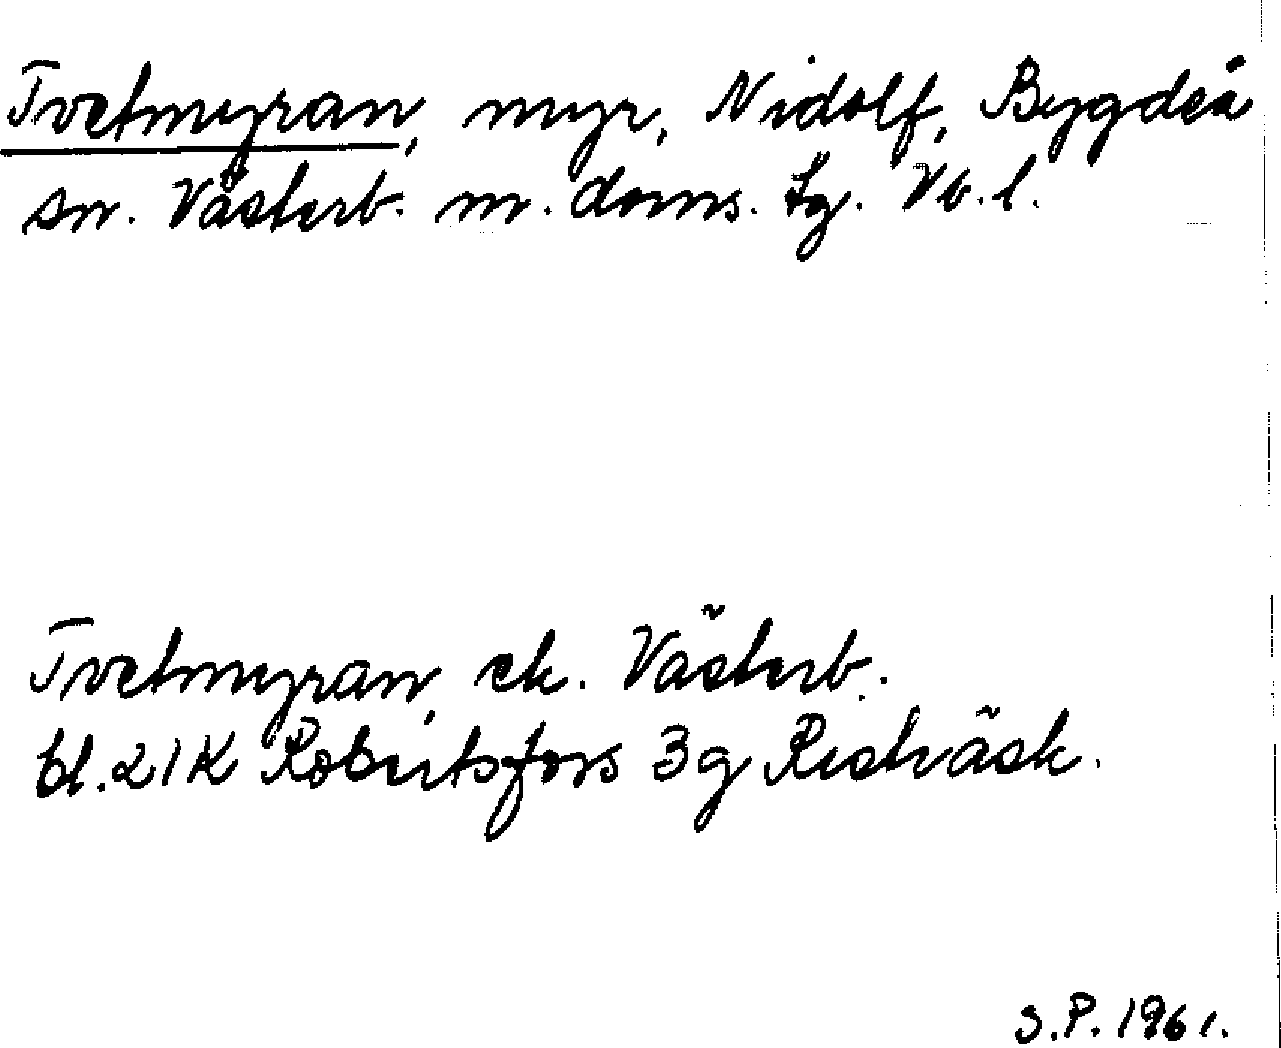 Tvetmyran, myr, Nidolf, Bygdeå
sn. Västerb. m. doms. tg. Vb. l.
Tvetmyran, ek. Västerb.
bl. 21K Robertsfors 3g Risträsk.
S.P. 1961.